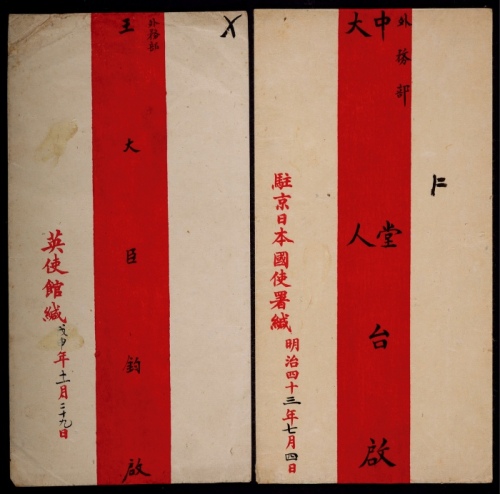 外務部
王大臣鈞啟
英使館緘戊申年十一月二十九日
外務部
中堂
大人
台啟
駐京日本國使署緘明治四十三年七月四日